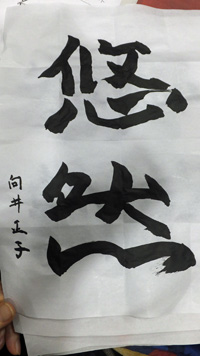 悠然
向井正子